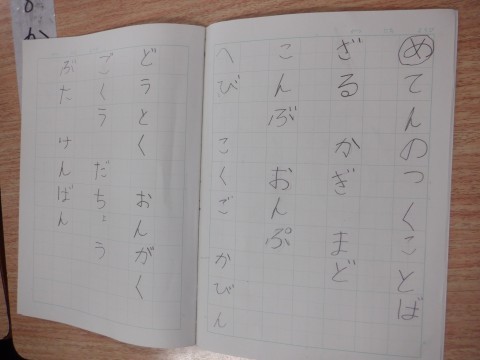 めてんのつくことば
ざる かぎ まど
こんぶ おんぷ
へび こくご かびん
どうとく おんがく
ごくう だちょう
ぶた けんばん